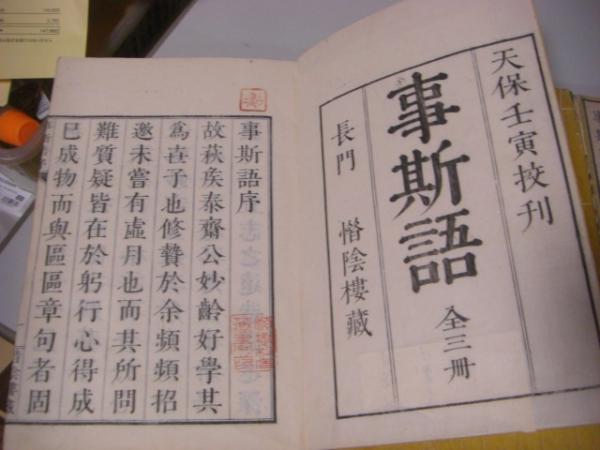 天保壬寅挍刋
事斯語
全三冊
長門
惜陰樓藏
事斯語序
故萩矦泰齋公妙齡好學其
爲吾子也修贄於余頻頻招
邀未嘗有虛月也而其所問
難質疑皆在於躬行心得成
已成物而與區區章句者固